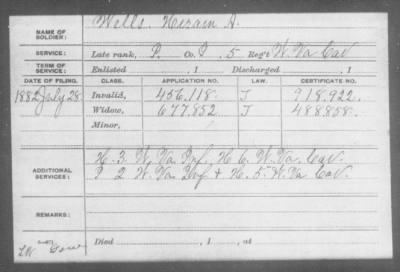 NAME OF SOLDIER: Wells, Hiram A.
SERVICE: Late rank, P. Co. I, 5 Reg't W. Va Cav
TERM OF SERVICE: Enlisted , 1 Discharged , 1
DATE OF FILING. CLASS. APPLICATION NO. LAW. CERTIFICATE NO.
1882 July 28 Invalid, 456.118. J 918.922.
Widow, 677.852 J 488.858.
Minor,
ADDITIONAL SERVICES: H. 3. W. Va. Inf., H. 6. W. Va. Cav.
2 W. Va Inf + H. 5. W. Va Cav.
REMARKS:
Died , 1 , at